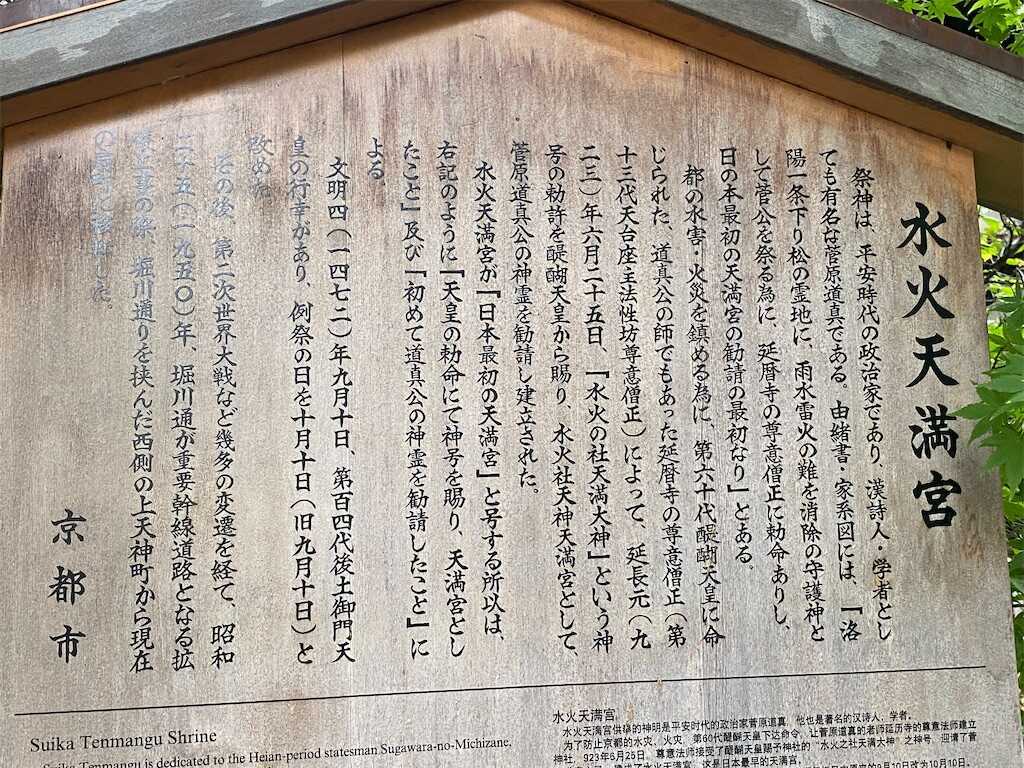 水火天満宮
祭神は、平安時代の政治家であり、漢詩人・学者とし
ても有名な菅原道真である。由緒書・家系図には、「洛
陽一条下り松の霊地に、雨水雷火の難を消除の守護神と
して菅公を祭る為に、延暦寺の尊意僧正に勅命ありし、
日の本最初の天満宮の勧請の最初なり」とある。
都の水害・火災を鎮める為に、第六十代醍醐天皇に命
じられた、道真公の師でもあった延暦寺の尊意僧正(第
十三代天台座主法性坊尊意僧正)によって、延長元(九
二三)年六月二十五日、「水火の社天満大神」という神
号の勅許を醍醐天皇から賜り、水火社天神天満宮として、
菅原道真公の神霊を勧請し建立された。
水火天満宮が「日本最初の天満宮」と号する所以は、
右記のように「天皇の勅命にて神号を賜り、天満宮とし
たこと」及び「初めて道真公の神霊を勧請したこと」に
よる。
文明四(一四七二)年九月十日、第百四代後土御門天
皇の行幸があり、例祭の日を十月十日(旧九月十日)と
改めた
その後、第二次世界大戦など幾多の変遷を経て、昭和
二十五(一九五〇)年、堀川通が重要幹線道路となる拡
張工事の際、堀川通りを挟んだ西側の上天神町から現在
の扇町に移転した。
京都市
Suika Tenmangu Shrine
Suika Tenmangu is dedicated to the Heian-period statesman Sugawara-no-Michizane.
水火天满宫
水火天满宫供奉的神明是平安时代的政治家菅原道真，他也是著名的汉诗人、学者。
为了防止京都的水灾、火灾，第60代醍醐天皇下达命令，让菅原道真的老师延历寺的尊意法师建立
神社。923年6月25日，尊意法师接受了醍醐天皇赐予神社的“水火之社天满大神”之神号，迎请了菅
这是日本最早的天满宫。
9月10日改为10月10日。